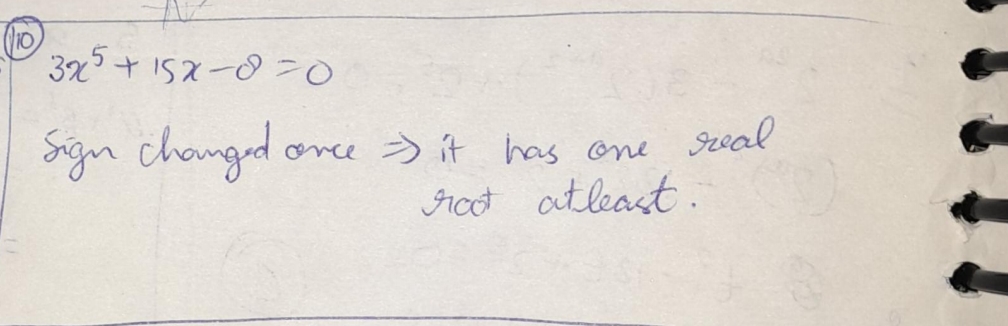 10
3x⁵ + 15x - 8 = 0
Sign changed once ⇒ it has one real
root atleast.